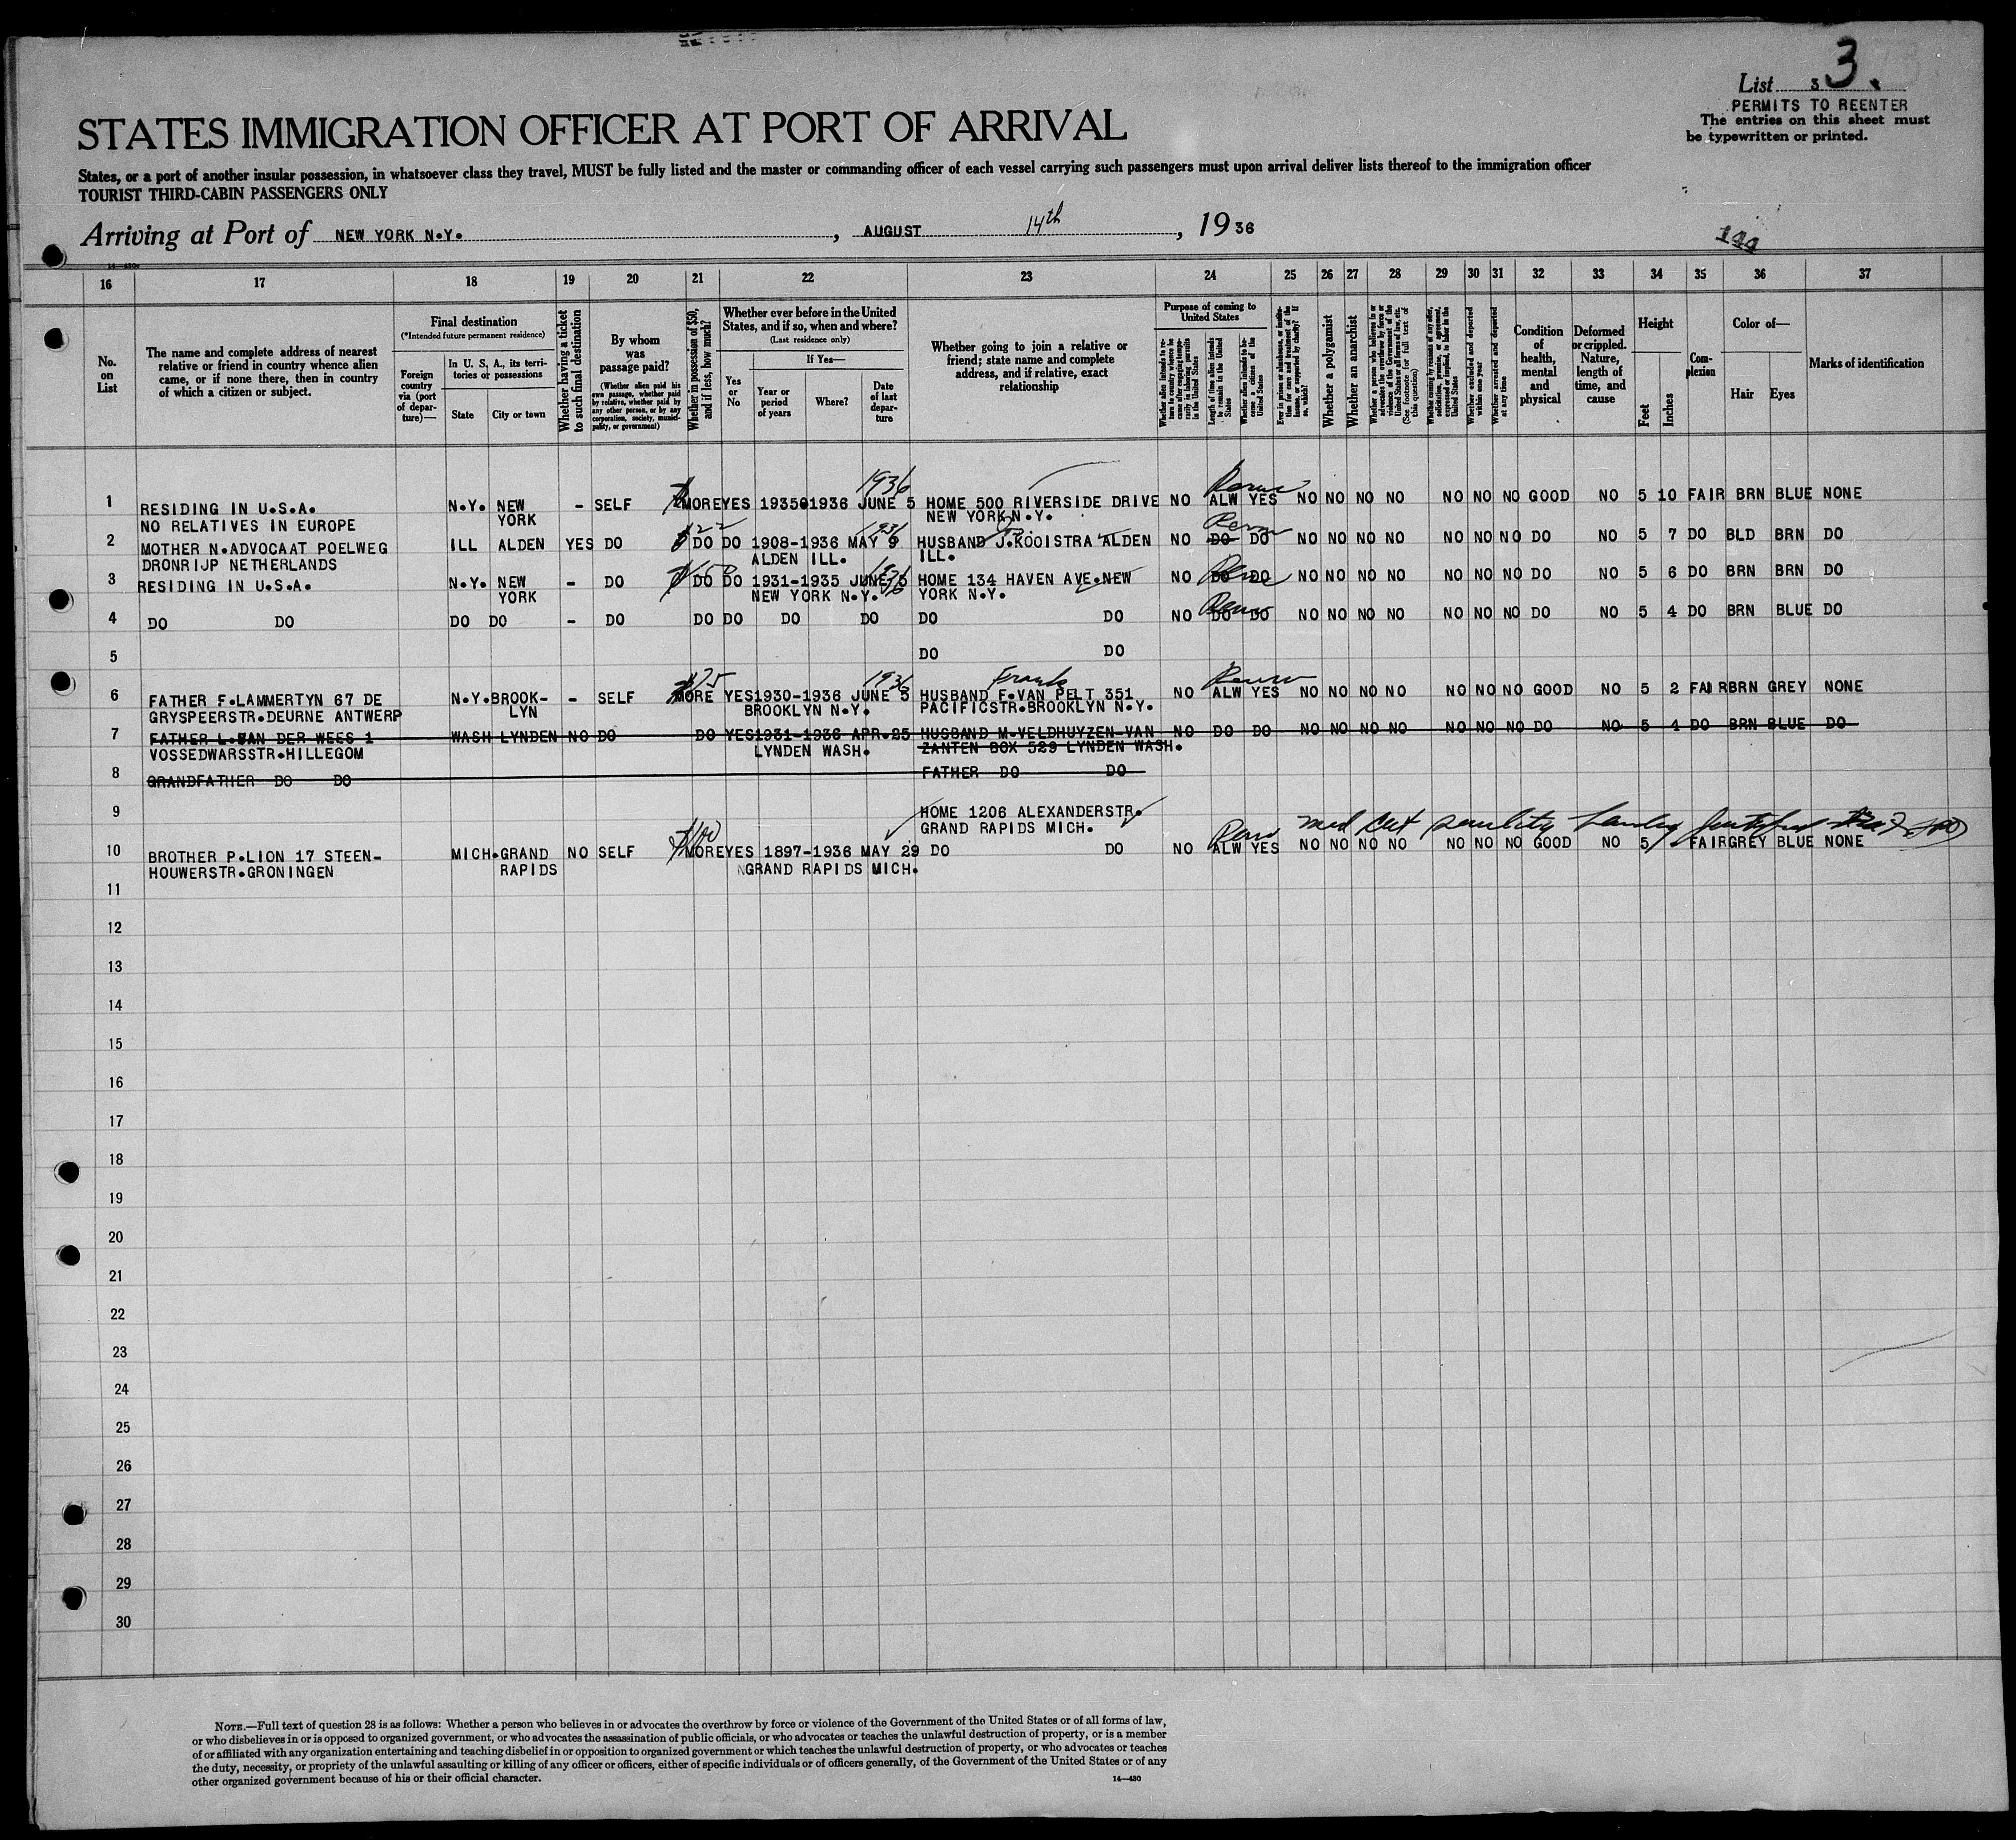 List 3 3.
PERMITS TO REENTER
The entries on this sheet must
be typewritten or printed.
STATES IMMIGRATION OFFICER AT PORT OF ARRIVAL
States, or a port of another insular possession, in whatsoever class they travel, MUST be fully listed and the master or commanding officer of each vessel carrying such passengers must upon arrival deliver lists thereof to the immigration officer
TOURIST THIRD-CABIN PASSENGERS ONLY
Arriving at Port of NEW YORK N.Y., AUGUST 14th, 1936
144
16 17 18 19 20 21 22 23 24 25 26 27 28 29 30 31 32 33 34 35 36 37
No. on List
The name and complete address of nearest relative or friend in country whence alien came, or if none there, then in country of which a citizen or subject.
Final destination
(*Intended future permanent residence)
Foreign country via (port of departure)—
In U. S. A., its territories or possessions
State City or town
Whether having a ticket to such final destination
By whom was passage paid?
(Whether alien paid his own passage, whether paid by relative, whether paid by any other person, or by any corporation, society, municipality, or government)
Whether in possession of $50, and if less, how much?
Whether ever before in the United States, and if so, when and where?
(Last residence only)
Yes or No
If Yes—
Year or period of years Where? Date of last departure
Whether going to join a relative or friend; state name and complete address, and if relative, exact relationship
Purpose of coming to United States
Length of time alien intends to remain in the United States
Whether alien intends to become a citizen of the United States
Whether a polygamist
Whether an anarchist
(See footnote for full text of this question)
Whether excluded and deported within one year
Whether arrested and deported at any time
Condition of health, mental and physical
Deformed or crippled. Nature, length of time, and cause
Height
Feet Inches
Complexion
Color of—
Hair Eyes
Marks of identification
1936
1 RESIDING IN U.S.A. N.Y. NEW - SELF MORE YES 1935 1936 JUNE 5 HOME 500 RIVERSIDE DRIVE NO ALW YES NO NO NO NO NO NO NO GOOD NO 5 10 FAIR BRN BLUE NONE
NO RELATIVES IN EUROPE YORK NEW YORK N.Y.
2 MOTHER N.ADVOCAAT POELWEG ILL ALDEN YES DO DO DO 1908-1936 MAY 9 HUSBAND J.KOOISTRA ALDEN NO DO DO NO NO NO NO NO NO NO DO NO 5 7 DO BLD BRN DO
DRONRIJP NETHERLANDS ALDEN ILL. ILL.
3 RESIDING IN U.S.A. N.Y. NEW - DO DO DO 1931-1935 JUNE 5 HOME 134 HAVEN AVE.NEW NO DO DO NO NO NO NO NO NO NO DO NO 5 6 DO BRN BRN DO
YORK NEW YORK N.Y. YORK N.Y.
4 DO DO DO DO - DO DO DO DO DO DO DO NO DO DO NO NO NO NO NO NO NO DO NO 5 4 DO BRN BLUE DO
5 DO DO
$75 1936 Frank
6 FATHER F.LAMMERTYN 67 DE N.Y. BROOK- - SELF MORE YES 1930-1936 JUNE 5 HUSBAND F.VAN PELT 351 NO ALW YES NO NO NO NO NO NO NO GOOD NO 5 2 FAIR BRN GREY NONE
GRYSPEERSTR.DEURNE ANTWERP LYN BROOKLYN N.Y. PACIFICSTR.BROOKLYN N.Y.
7 FATHER L.VAN DER WEES 1 WASH LYNDEN NO DO DO YES 1931-1936 APR.25 HUSBAND M.VELDHUYZEN-VAN NO DO DO NO NO NO NO NO NO NO DO NO 5 4 DO BRN BLUE DO
VOSSEDWARSSTR.HILLEGOM LYNDEN WASH. ZANTEN BOX 529 LYNDEN WASH.
8 GRANDFATHER DO DO FATHER DO DO
9 HOME 1206 ALEXANDERSTR.
GRAND RAPIDS MICH.
$100 med Cert senility
10 BROTHER P.LION 17 STEEN- MICH.GRAND NO SELF MORE YES 1897-1936 MAY 29 DO DO NO ALW YES NO NO NO NO NO NO NO GOOD NO 5 FAIR GREY BLUE NONE
HOUWERSTR.GRONINGEN RAPIDS GRAND RAPIDS MICH.
11
12
13
14
15
16
17
18
19
20
21
22
23
24
25
26
27
28
29
30
NOTE.—Full text of question 28 is as follows: Whether a person who believes in or advocates the overthrow by force or violence of the Government of the United States or of all forms of law,
or who disbelieves in or is opposed to organized government, or who advocates the assassination of public officials, or who advocates or teaches the unlawful destruction of property, or is a member
of or affiliated with any organization entertaining and teaching disbelief in or opposition to organized government or which teaches the unlawful destruction of property, or who advocates or teaches
the duty, necessity, or propriety of the unlawful assaulting or killing of any officer or officers, either of specific individuals or of officers generally, of the Government of the United States or of any
other organized government because of his or their official character.
14—430